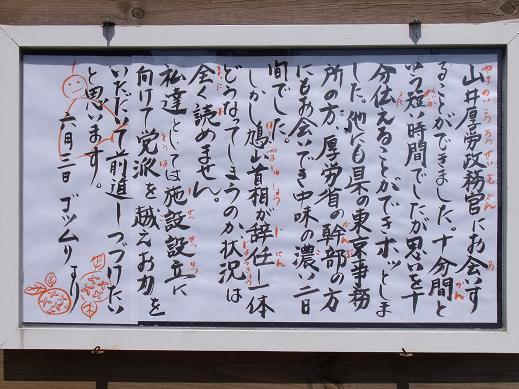 山井厚労政務官にお会いす
ることができました。十分間と
いう短い時間でしたが思いを十
分伝えることができホッとしま
した。他にも県の東京事務
所の方、厚労省の幹部の方
にもお会いでき中味の濃い二日
間でした。
しかし鳩山首相が辞任し一体
どうなってしまうのか状況は
全く読めません。
私達としては施設設立に
向けて党派を越えお力を
いただいて前進しつづけたい
と思います。
六月三日 ゴッツムリより